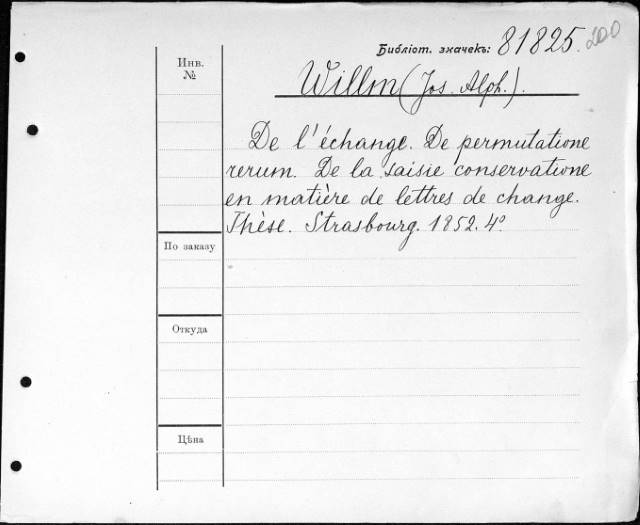 Библіот. значекъ: 81825. 200
Инв. №
Willm (Jos. Alph.).
De l'échange. De permutatione
rerum. De la saisie conservatione
en matière de lettres de change.
Thèse. Strasbourg. 1852. 4°
По заказу
Откуда
Цѣна